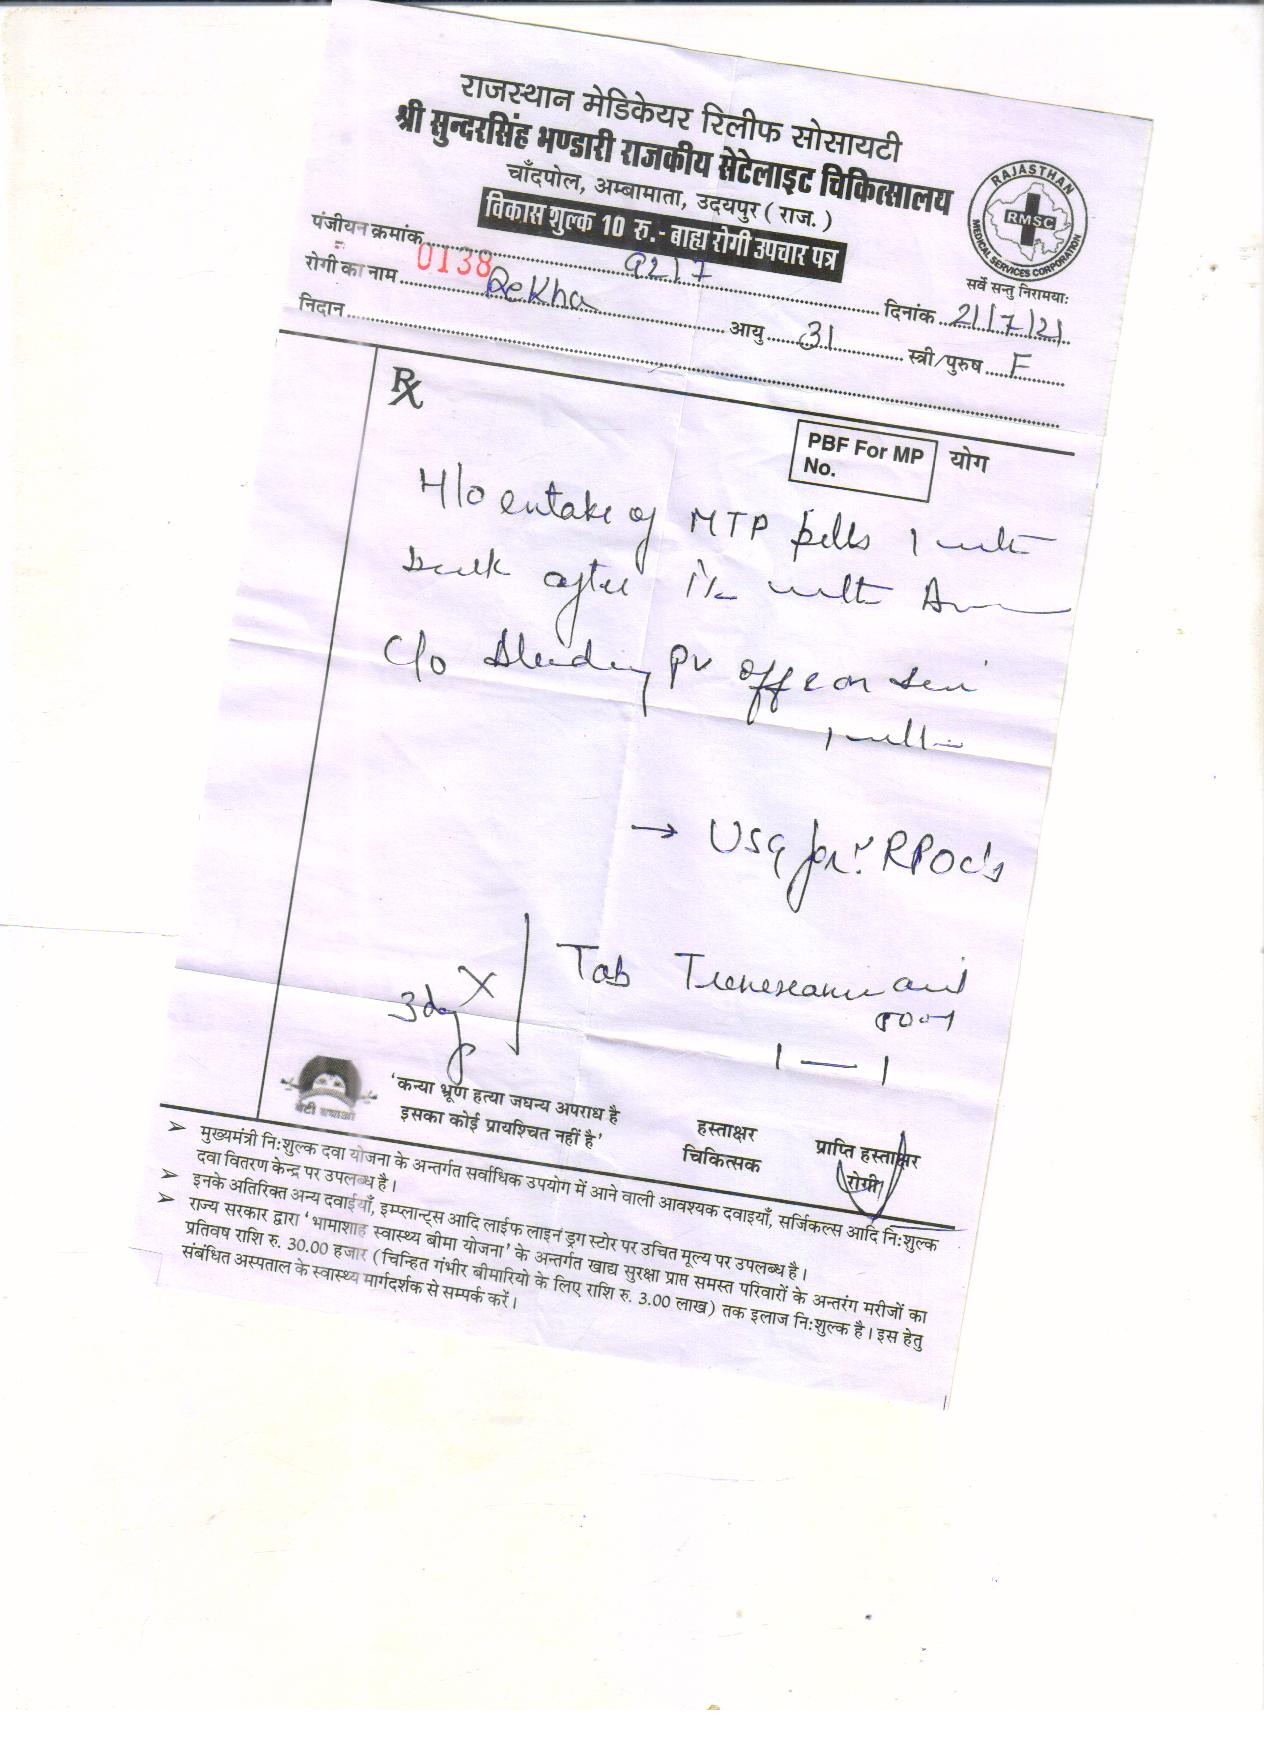 राजस्थान मेडिकेयर रिलीफ सोसायटी
श्री सुन्दरसिंह भण्डारी राजकीय सेटेलाइट चिकित्सालय
चाँदपोल, अम्बामाता, उदयपुर ( राज. )
विकास शुल्क 10 रु.- बाह्य रोगी उपचार पत्र
RAJASTHAN
RMSC
MEDICAL SERVICES CORPORATION
सर्वे सन्तु निरामयाः
पंजीयन क्रमांक 0138 दिनांक 21/7/21
रोगी का नाम Rekha आयु 31 स्त्री/पुरुष F
निदान
Rx
PBF For MP
No.
योग
H/o intake of MTP pills 1
after
C/o bleeding PV off & on
→ USG for? RPOC's
Tab Tranexamic acid
X 3day
1 — 1
बेटी बचाओ
'कन्या भ्रूण हत्या जघन्य अपराध है
इसका कोई प्रायश्चित नहीं है'
हस्ताक्षर
चिकित्सक
प्राप्ति हस्ताक्षर
रोगी
➤ मुख्यमंत्री नि:शुल्क दवा योजना के अन्तर्गत सर्वाधिक उपयोग में आने वाली आवश्यक दवाइयाँ, सर्जिकल्स आदि नि:शुल्क
दवा वितरण केन्द्र पर उपलब्ध है।
➤ इनके अतिरिक्त अन्य दवाईयाँ, इम्प्लान्ट्स आदि लाईफ लाइन ड्रग स्टोर पर उचित मूल्य पर उपलब्ध है।
➤ राज्य सरकार द्वारा 'भामाशाह स्वास्थ्य बीमा योजना' के अन्तर्गत खाद्य सुरक्षा प्राप्त समस्त परिवारों के अन्तरंग मरीजों का
प्रतिवष राशि रु. 30.00 हजार (चिन्हित गंभीर बीमारियो के लिए राशि रु. 3.00 लाख) तक इलाज नि:शुल्क है। इस हेतु
संबंधित अस्पताल के स्वास्थ्य मार्गदर्शक से सम्पर्क करें।